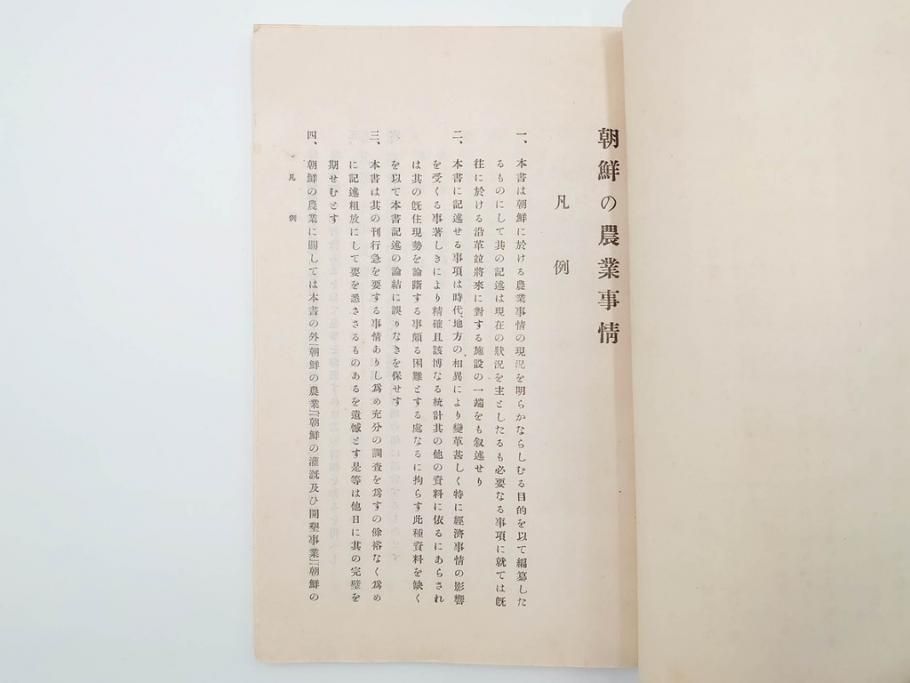 朝鮮の農業事情
凡例
一、本書は朝鮮に於ける農業事情の現況を明らかならしむる目的を以て編纂した
るものにして其の記述は現在の狀況を主としたるも必要なる事項に就ては旣
往に於ける沿革竝將來に對する施設の一端をも叙述せり
二、本書に記述せる事項は時代、地方の相異により變革甚しく特に經濟事情の影響
を受くる事著しきにより精確且該博なる統計其の他の資料に依るにあらされ
は其の旣住現勢を論斷する事頗る困難とする處なるに拘らす此種資料を缺く
を以て本書記述の論結に誤りなきを保せす
三、本書は其の刊行急を要する事情ありし爲め充分の調査を爲すの餘裕なく爲め
に記述粗放にして要を悉ささるものあるを遺憾とす是等は他日に其の完璧を
期せむとす
四、朝鮮の農業に關しては本書の外「朝鮮の農業」「朝鮮の灌漑及ひ開墾事業」「朝鮮の
凡例